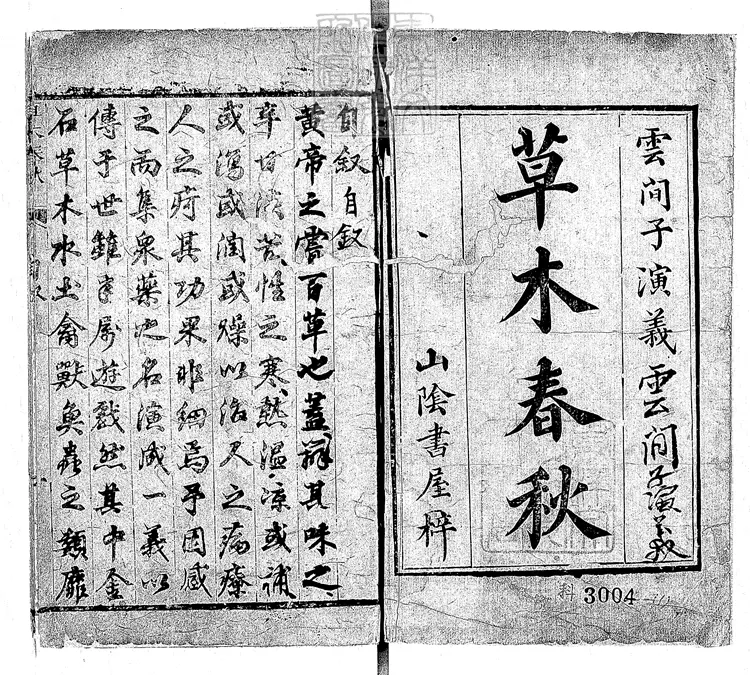 雲間子演義雲间子演義
草木春秋
山陰書屋梓
3004
自叙自叙
黃帝之嘗百草也蓋辨其味之
辛甘淡苦性之寒熱温凉或補
或瀉或潤或燥以治人之病療
人之疴其功果非細焉予因感
之而集衆藥之名演成一義以
傳于世雖半屬遊戲然其中金
石草木水土禽獸魚蟲之類靡